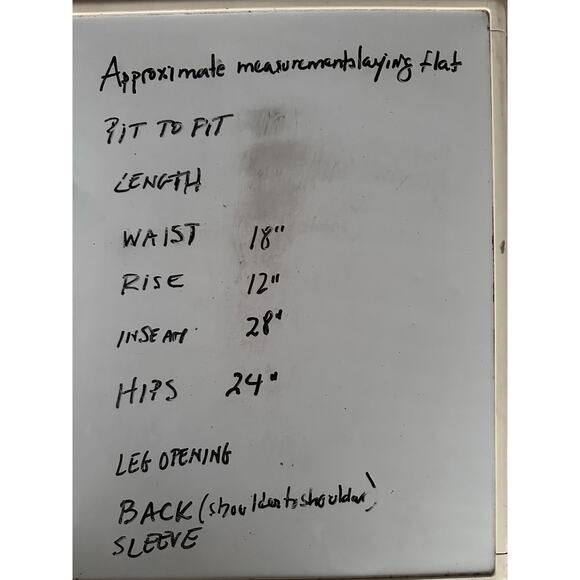 Approximate measurements laying flat
PIT TO PIT
LENGTH
WAIST 18"
RISE 12"
INSEAM 28"
HIPS 24"
LEG OPENING
BACK (shoulder to shoulder)
SLEEVE